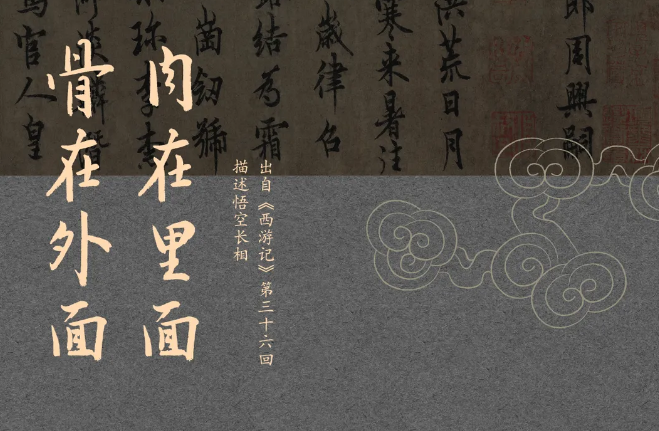 郎周興嗣
洪荒日月
寒来暑往
歲律吕
結為霜
崗劒號
珍李柰
官人皇
肉在里面
骨在外面
出自《西游记》第三十六回
描述悟空长相